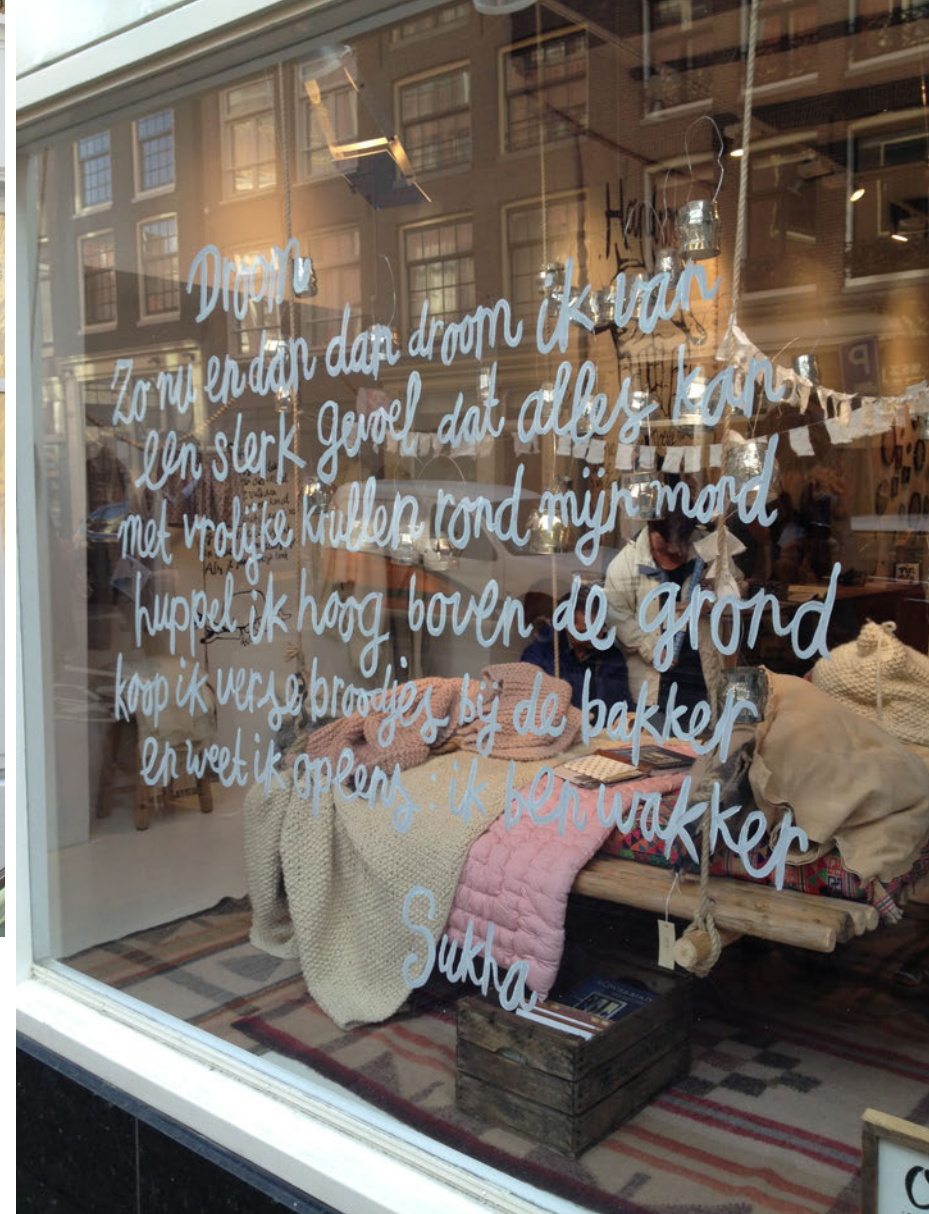 Droom
Zo nu en dan dan droom ik van
een sterk gevoel dat alles kan
met vrolijke krullen rond mijn mond
huppel ik hoog boven de grond
koop ik verse broodjes bij de bakker
en weet ik opeens: ik ben wakker
Sukha
P